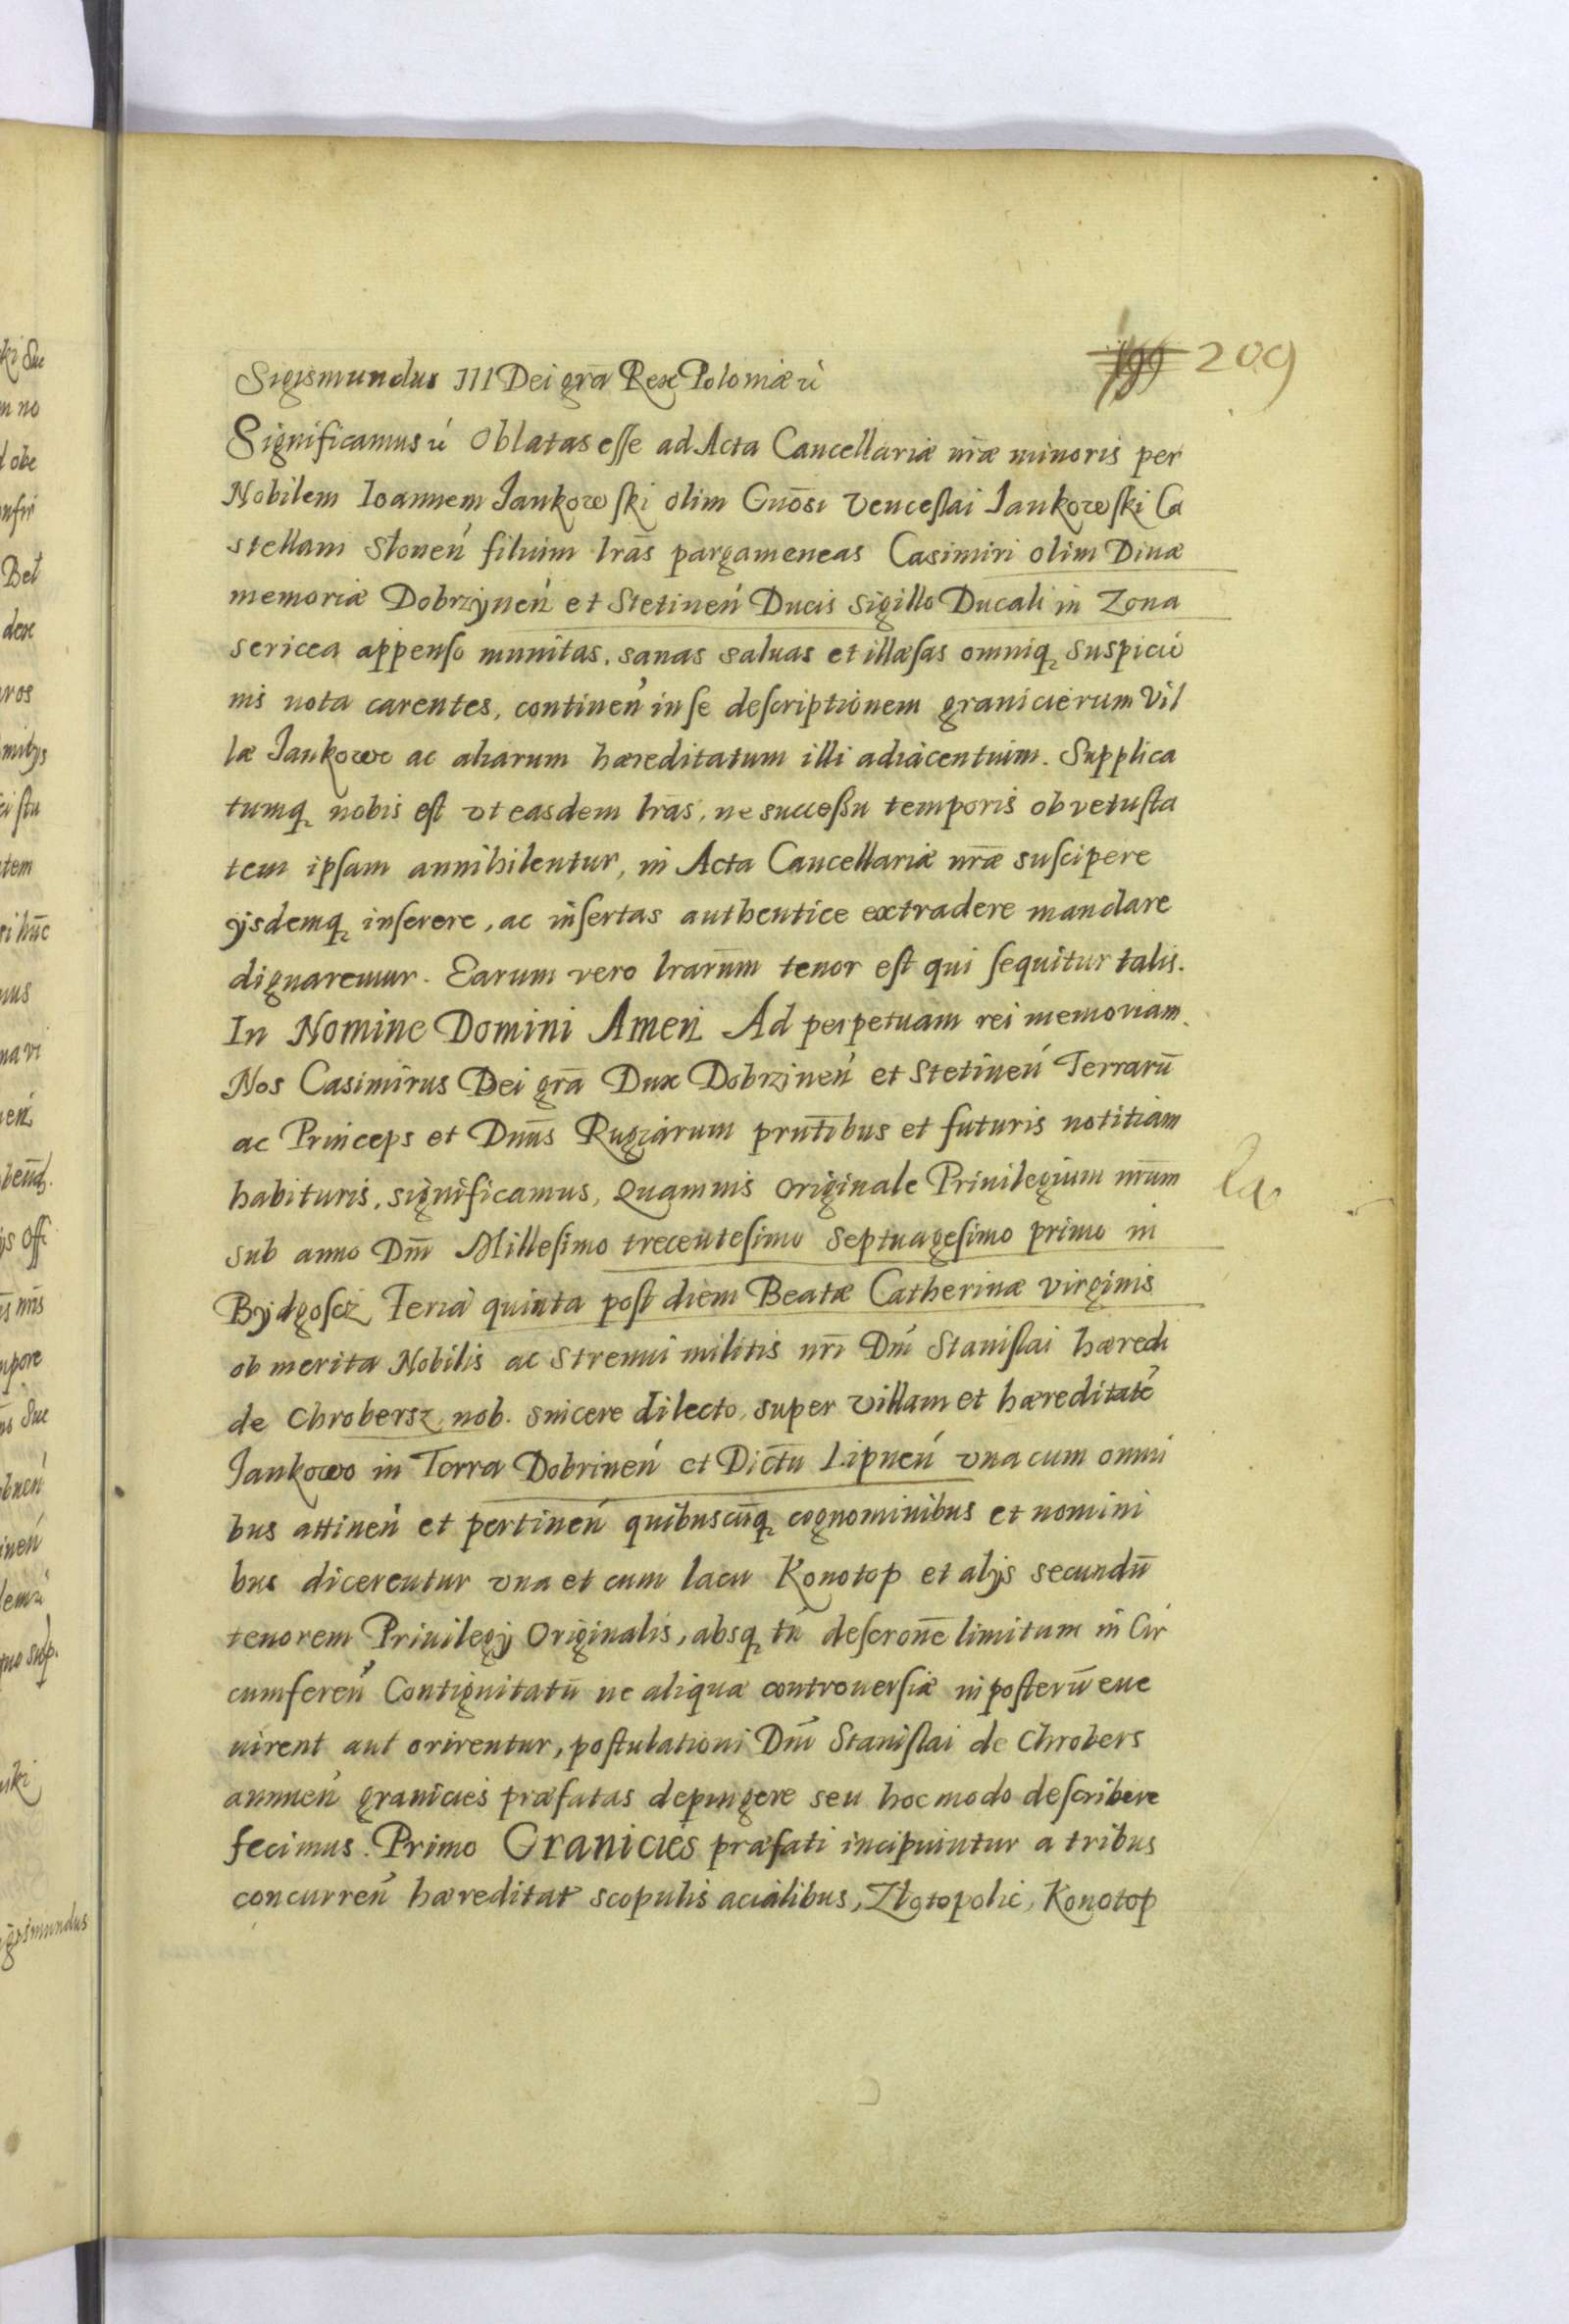 209
Sigismundus III Dei grã Rex Poloniæ ũ
Significamus ũ Oblatas esse ad Acta Cancellariæ nr̃æ minoris per
Nobilem Ioannem Jankowski olim Gnõsi Venceslai Jankowski Ca
stellani Slonen̛ filium lrãs pargameneas Casimiri olim Diuæ
memoriæ Dobrzynen̛ et Stetinen̛ Ducis Sigillo Ducali in Zona
sericea appenso munitas, sanas saluas et illæsas omniq̢ suspició
nis nota carentes, continen̛ in se descriptionem granicierum Vil
læ Jankowo ac aliarum hæreditatum illi adiacentium. Supplica
tumq̢ nobis est vt easdem lrãs, ne successu temporis ob vetusta
tem ipsam annihilentur, in Acta Cancellariæ nr̃æ suscipere
ijsdemq̢ inserere, ac insertas authentice extradere mandare
dignaremur. Earum vero lrarũm tenor est qui sequitur talis.
In Nomine Domini Amen. Ad perpetuam rei memoriam.
Nos Casimirus Dei grã Dux Dobrzinen̛ et Stetinen̛ Terrarũ
ac Princeps et Dnũs Rugiarum prñtibus et futuris notitiam
habituris, significamus, Quamuis originale Priuilegium nr̃um
sub anno Dñi Millesimo trecentesimo Septuagesimo primo in
Bydgoscz Feria quinta post diem Beatæ Catherinæ virginis
ob merita Nobilis ac Strenui militis nr̃i Dñi Stanislai hæredi
de Chrobersz nob. sincere dilecto, super villam et hæreditatẽ
Jankowo in Terra Dobrinen̛ et Dictũ Lipnen̛ vna cum omni
bus attinen̛ et pertinen̛ quibuscũq̢ cognominibus et nomini
bus dicerentur vna et cum lacu Konotop et alijs secundũ
tenorem Priuilegij Originalis, absq̢ tñ descronẽ limitum in Cir
cumferen̛ Contiguitatũ ne aliquæ controuersiæ in posterũ eue
nirent aut orirentur, postulationi Dñi Stanislai de Chrobers
annuen̛ granicies præfatas depingere seu hoc modo describere
fecimus. Primo Granicies præfati incipiuntur a tribus
concurren̛ hæreditat scopulis acialibus, Zlotopolie, Konotop